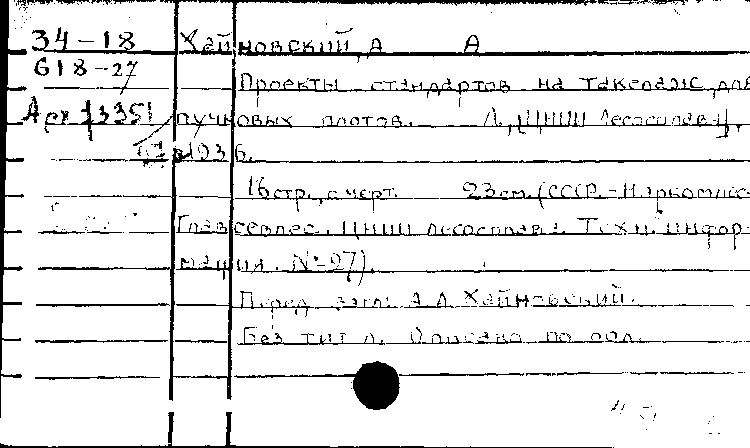 34-18 Хайновский, А А
618-27
Проекты стандартов на такелаж для
Арх 13351 пучковых плотов. Л, ЦНИИ Лесосплава,
1936.
16стр., с черт. 23см. (СССР. - Наркомлес-
Главсевлес. ЦНИИ лесосплава. Техн. инфор-
мация. №-27).
Перед загл: А А Хайновский.
Без тит л. Описано по обл.